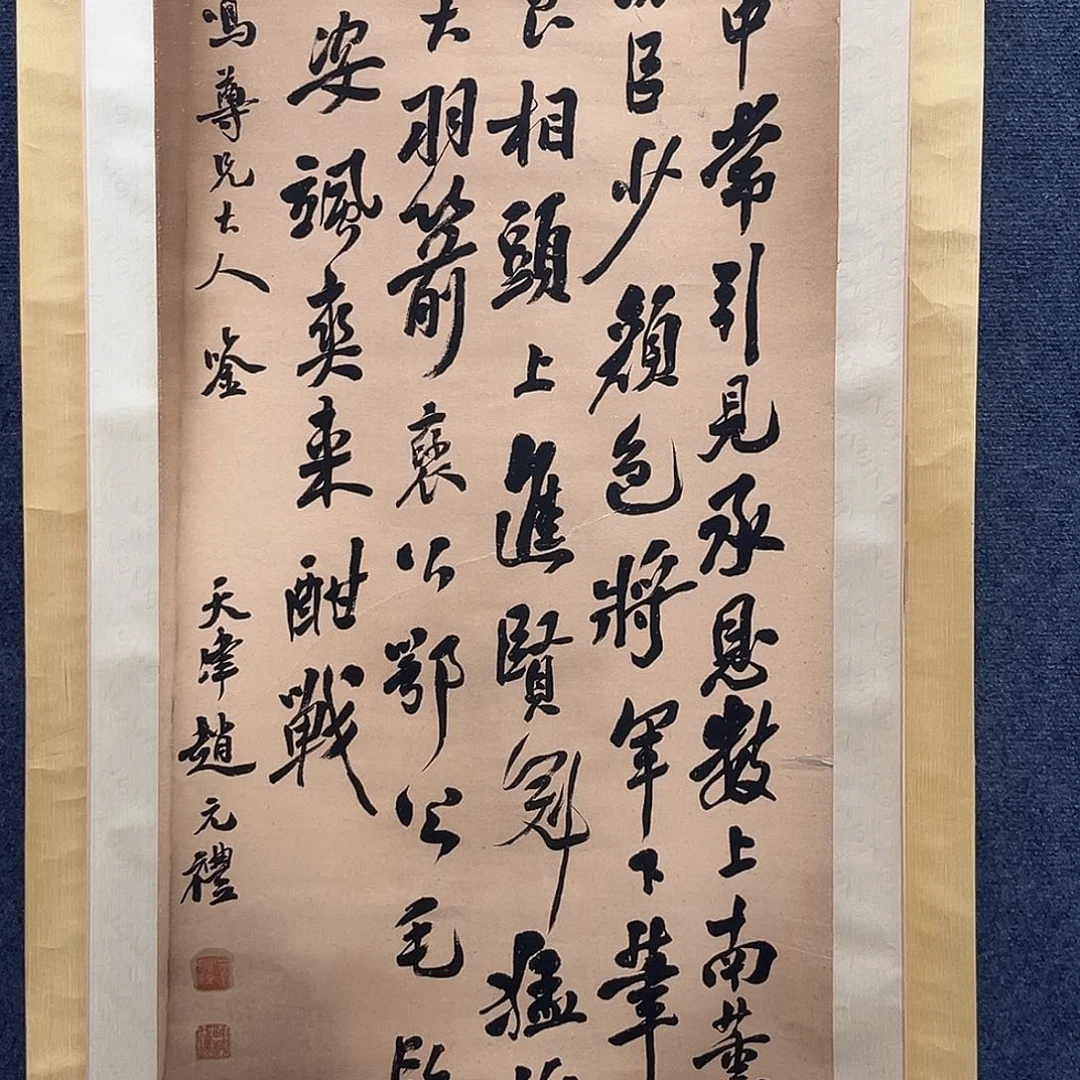 中常引見承恩數上南薰
臣少顏色將軍下筆
良相頭上進賢冠猛
大羽箭褒公鄂公毛
姿颯爽来酣戰
鳴尊兄大人鑒
天津趙元禮